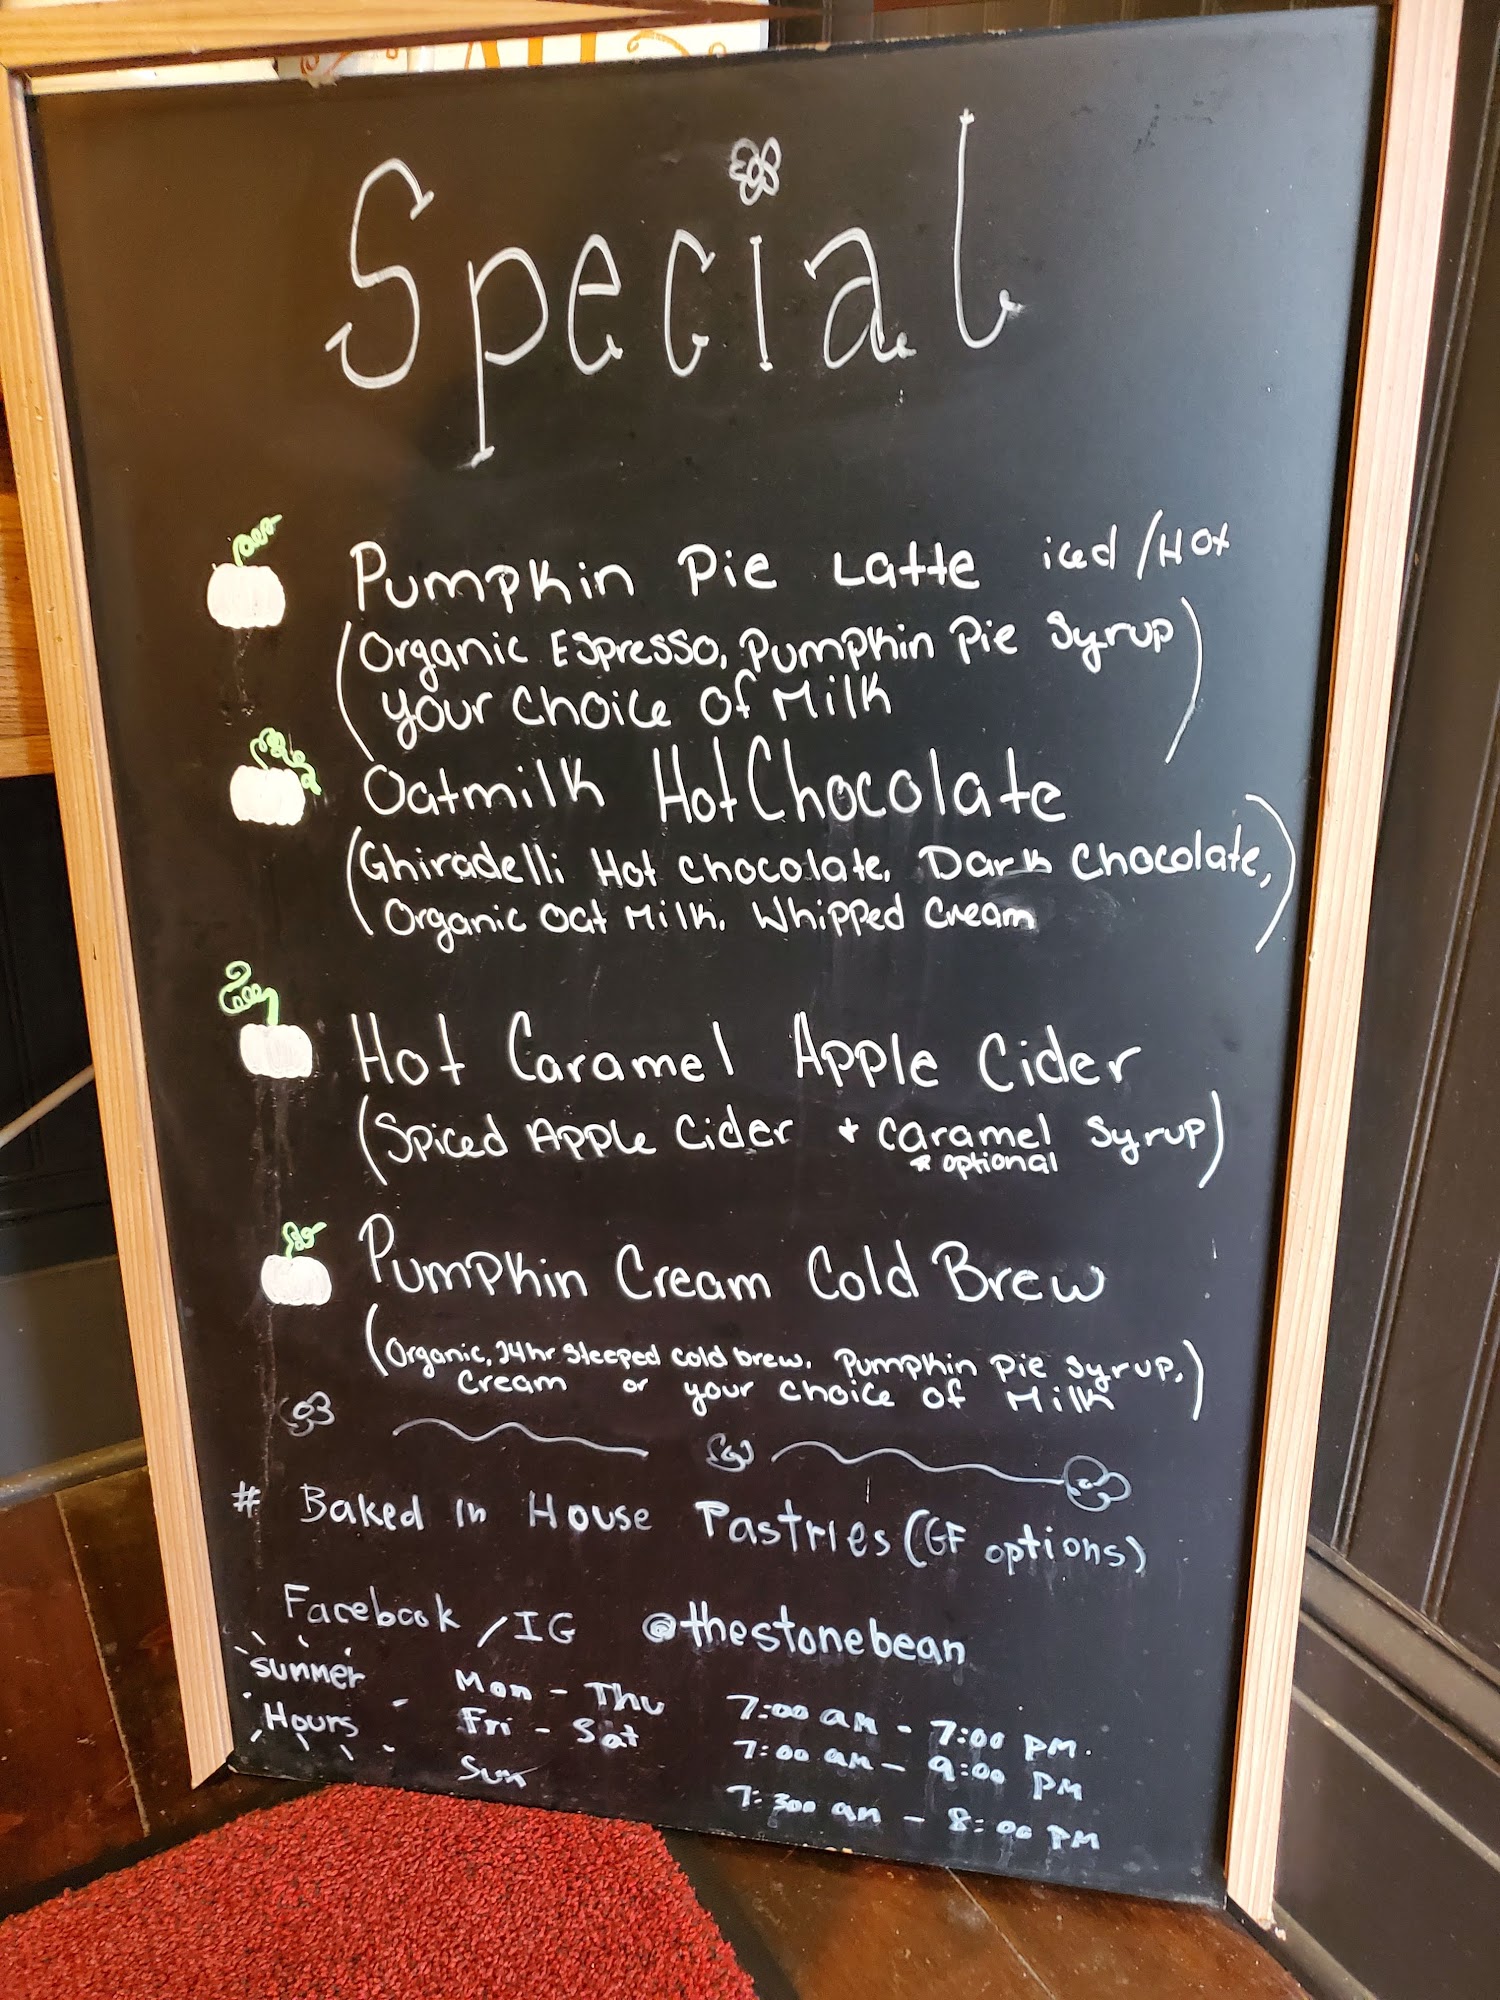 Special
Pumpkin Pie Latte iced/Hot
(Organic Espresso, Pumpkin Pie Syrup
your choice of Milk)
Oatmilk Hot Chocolate
(Ghiradelli Hot chocolate, Dark Chocolate,
Organic Oat Milk, Whipped Cream)
Hot Caramel Apple Cider
(Spiced Apple Cider + Caramel Syrup)
* optional
Pumpkin Cream Cold Brew
(Organic, 24hr Steeped cold brew, Pumpkin Pie Syrup,
Cream or your choice of Milk)
# Baked In House Pastries (GF options)
Facebook / IG @thestonebean
sunner Mon - Thu 7:00 am - 7:00 PM.
Hours Fri - Sat 7:00 am - 9:00 PM
Sun 7:300 am - 8:00 PM